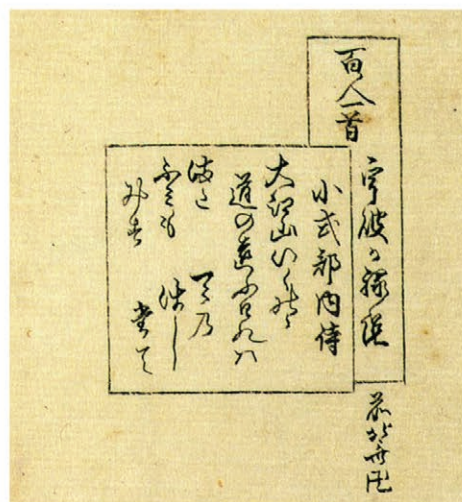 百人一首
宇波か縁説
小式部内侍
大江山いく野の
道の遠けれハ
満た
ふミも
みす
天乃
はし
堂て
前北斎卍